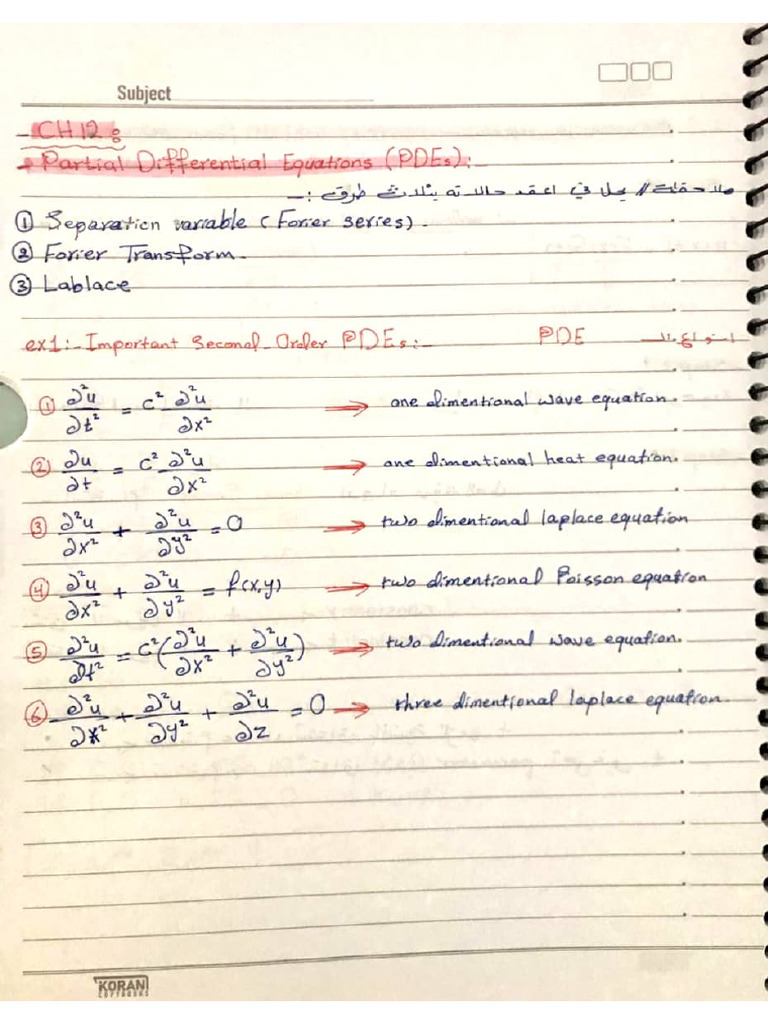 Subject
- CH12:
- Partial Differential Equations (PDEs):-
ملاحظات // يحل في اعقد حالاته بثلاث طرق :-
① Separation variable (Forier series).
② Forier Transform.
③ Lablace
ex1:- Important Second-Order PDEs:- PDE انواع الـ
① ∂²u/∂t² = c² ∂²u/∂x² → one dimentional wave equation.
② ∂u/∂t = c² ∂²u/∂x² → one dimentional heat equation.
③ ∂²u/∂x² + ∂²u/∂y² = 0 → two dimentional laplace equation
④ ∂²u/∂x² + ∂²u/∂y² = f(x,y) → two dimentional Poisson equation
⑤ ∂²u/∂t² = c²(∂²u/∂x² + ∂²u/∂y²) → two dimentional wave equation.
⑥ ∂²u/∂x² + ∂²u/∂y² + ∂²u/∂z = 0 → three dimentional laplace equation.
KORAN